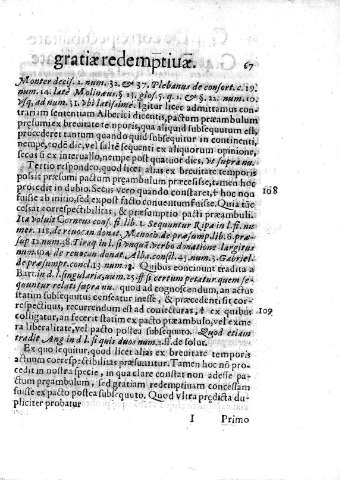 gratiæ redemptiuæ. 67
Monter decis. 2. num. 32. & 37. Plebanus de consort. c. 19.
num. 14. late Molinæus § 23. glos. 5. q. 2. & §. 12. num. 10.
vsq; ad num. 31. vbi latissimè. Igitur licet admittamus con-
trariam sententiam Alberici dicentis, pactum præambulum
præsumi ex breuitate temporis, qua aliquid subsequutum est,
procederet tantum quando quid subsequitur in continenti,
nempe, eodē die, vel saltē sequenti ex aliquorum opinione,
secus si ex interuallo, nempe post quatuor dies, vt supra nu.
Tertio respondeo, quod licet alias ex breuitate temporis
possit præsumi pactum præambulum præcessisse, tamen hoc
procedit in dubio. Secus vero quando constaret, & hoc non 108
fuisse ab initio, sed ex post facto conuentum fuisse. Quia tūc
cessat correspectibilitas, & præsumptio pacti præambuli.
Ita voluit Corneus conf. lib. 1. Sequuntur Ripa in l. fi. nu-
mer. 115. de reuocan donat. Menoch. de præsump. lib. 6. præ-
sup 12. num. 28. Tiraq. in l. si vnquā verbo donatione largitus
num. de reuocan donat. Alba cons. num. Gabriel.
de præsumpt. concl. 13. num. Quibus concinunt tradita a
Bart. in d. l. singularia, num. ff. si certum petatur quem se-
quuntur relati supra nu. quod ad cognoscendum, an actus
statim subsequutus censeatur inesse, & præcedenti sit cor-
respectiuus, recurrendum est ad coniecturas, & ex quibus 109
colligatur, an fecerit statim ex pacto præambulo, vel ex me
ra liberalitate, vel pacto postea subsequuto. Quod etiam
tradit Ang. in d l. si quis duos num. ff. de solut.
Ex quo sequitur, quod licet alias ex breuitate temporis
actuum correspectibilitas præsumatur. Tamen hoc nō pro-
cedit in nostra specie, in qua clare constat non adesse pa-
ctum præambulum, sed gratiam redemptiuam concessam
fuisse ex pacto postea subsequuto. Quod vltra prædicta du-
pliciter probatur
I Primo